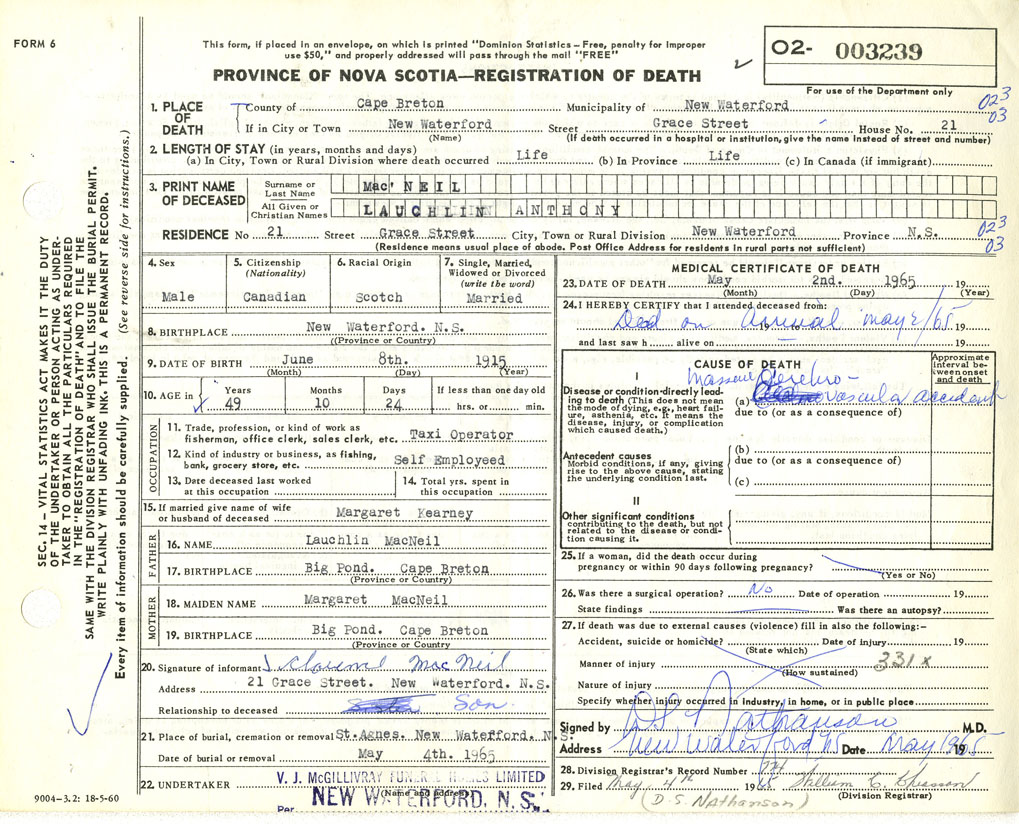 FORM 6
This form, if placed in an envelope, on which is printed "Dominion Statistics – Free, penalty for improper
use $50," and properly addressed will pass through the mail "FREE"
PROVINCE OF NOVA SCOTIA—REGISTRATION OF DEATH
02- 003239
For use of the Department only
1. PLACE OF DEATH
County of Cape Breton Municipality of New Waterford
023
03
If in City or Town New Waterford Street Grace Street House No. 21
(Name) (If death occurred in a hospital or institution, give the name instead of street and number)
2. LENGTH OF STAY (in years, months and days)
(a) In City, Town or Rural Division where death occurred Life (b) In Province Life (c) In Canada (if immigrant)
3. PRINT NAME OF DECEASED
Surname or Last Name Mac' NEIL
All Given or Christian Names LAUCHLIN ANTHONY
RESIDENCE No 21 Street Grace Street City, Town or Rural Division New Waterford Province N.S.
023
03
(Residence means usual place of abode. Post Office Address for residents in rural parts not sufficient)
4. Sex Male
5. Citizenship (Nationality) Canadian
6. Racial Origin Scotch
7. Single, Married, Widowed or Divorced (write the word) Married
8. BIRTHPLACE New Waterford. N.S.
(Province or Country)
9. DATE OF BIRTH June 8th. 1915
(Month) (Day) (Year)
10. AGE in Years 49 Months 10 Days 24 If less than one day old hrs. or min.
OCCUPATION
11. Trade, profession, or kind of work as fisherman, office clerk, sales clerk, etc. Taxi Operator
12. Kind of industry or business, as fishing, bank, grocery store, etc. Self Employeed
13. Date deceased last worked at this occupation
14. Total yrs. spent in this occupation
15. If married give name of wife or husband of deceased Margaret Kearney
FATHER
16. NAME Lauchlin MacNeil
17. BIRTHPLACE Big Pond. Cape Breton
(Province or Country)
MOTHER
18. MAIDEN NAME Margaret MacNeil
19. BIRTHPLACE Big Pond. Cape Breton
(Province or Country)
20. Signature of informant MacNeil
Address 21 Grace Street. New Waterford. N.S.
Relationship to deceased Son.
21. Place of burial, cremation or removal St. Agnes. New Waterford. N.S.
Date of burial or removal May 4th. 1965
22. UNDERTAKER V. J. McGILLIVRAY FUNERAL HOMES LIMITED
(Name and address)
Per NEW WATERFORD, N.S.
9004–3.2: 18-5-60
MEDICAL CERTIFICATE OF DEATH
23. DATE OF DEATH May 2nd. 1965 19
(Month) (Day) (Year)
24. I HEREBY CERTIFY that I attended deceased from:
Dead on Arrival May 2/65 19
and last saw h alive on 19
CAUSE OF DEATH
Approximate interval between onset and death
I
Disease or condition directly leading to death (This does not mean the mode of dying, e.g., heart failure, asthenia, etc. It means the disease, injury, or complication which caused death.)
(a) Massive Cerebro-vascular accident
due to (or as a consequence of)
Antecedent causes
Morbid conditions, if any, giving rise to the above cause, stating the underlying condition last.
(b)
due to (or as a consequence of)
(c)
II
Other significant conditions
contributing to the death, but not related to the disease or condition causing it.
25. If a woman, did the death occur during pregnancy or within 90 days following pregnancy?
(Yes or No)
26. Was there a surgical operation? No Date of operation 19
State findings Was there an autopsy?
27. If death was due to external causes (violence) fill in also the following:–
Accident, suicide or homicide? Date of injury 19
(State which)
Manner of injury 331 x
(How sustained)
Nature of injury
Specify whether injury occurred in industry, in home, or in public place
Signed by D.S. Nathanson M.D.
Address New Waterford NS Date May 1965
28. Division Registrar's Record Number
29. Filed May 4th 1965 William
(Division Registrar)
(D. S. Nathanson)
SEC. 14 – VITAL STATISTICS ACT MAKES IT THE DUTY
OF THE UNDERTAKER OR PERSON ACTING AS UNDER-
TAKER TO OBTAIN ALL THE PARTICULARS REQUIRED
IN THE "REGISTRATION OF DEATH" AND TO FILE THE
SAME WITH THE DIVISION REGISTRAR WHO SHALL ISSUE THE BURIAL PERMIT.
WRITE PLAINLY WITH UNFADING INK. THIS IS A PERMANENT RECORD.
Every item of information should be carefully supplied. (See reverse side for instructions.)